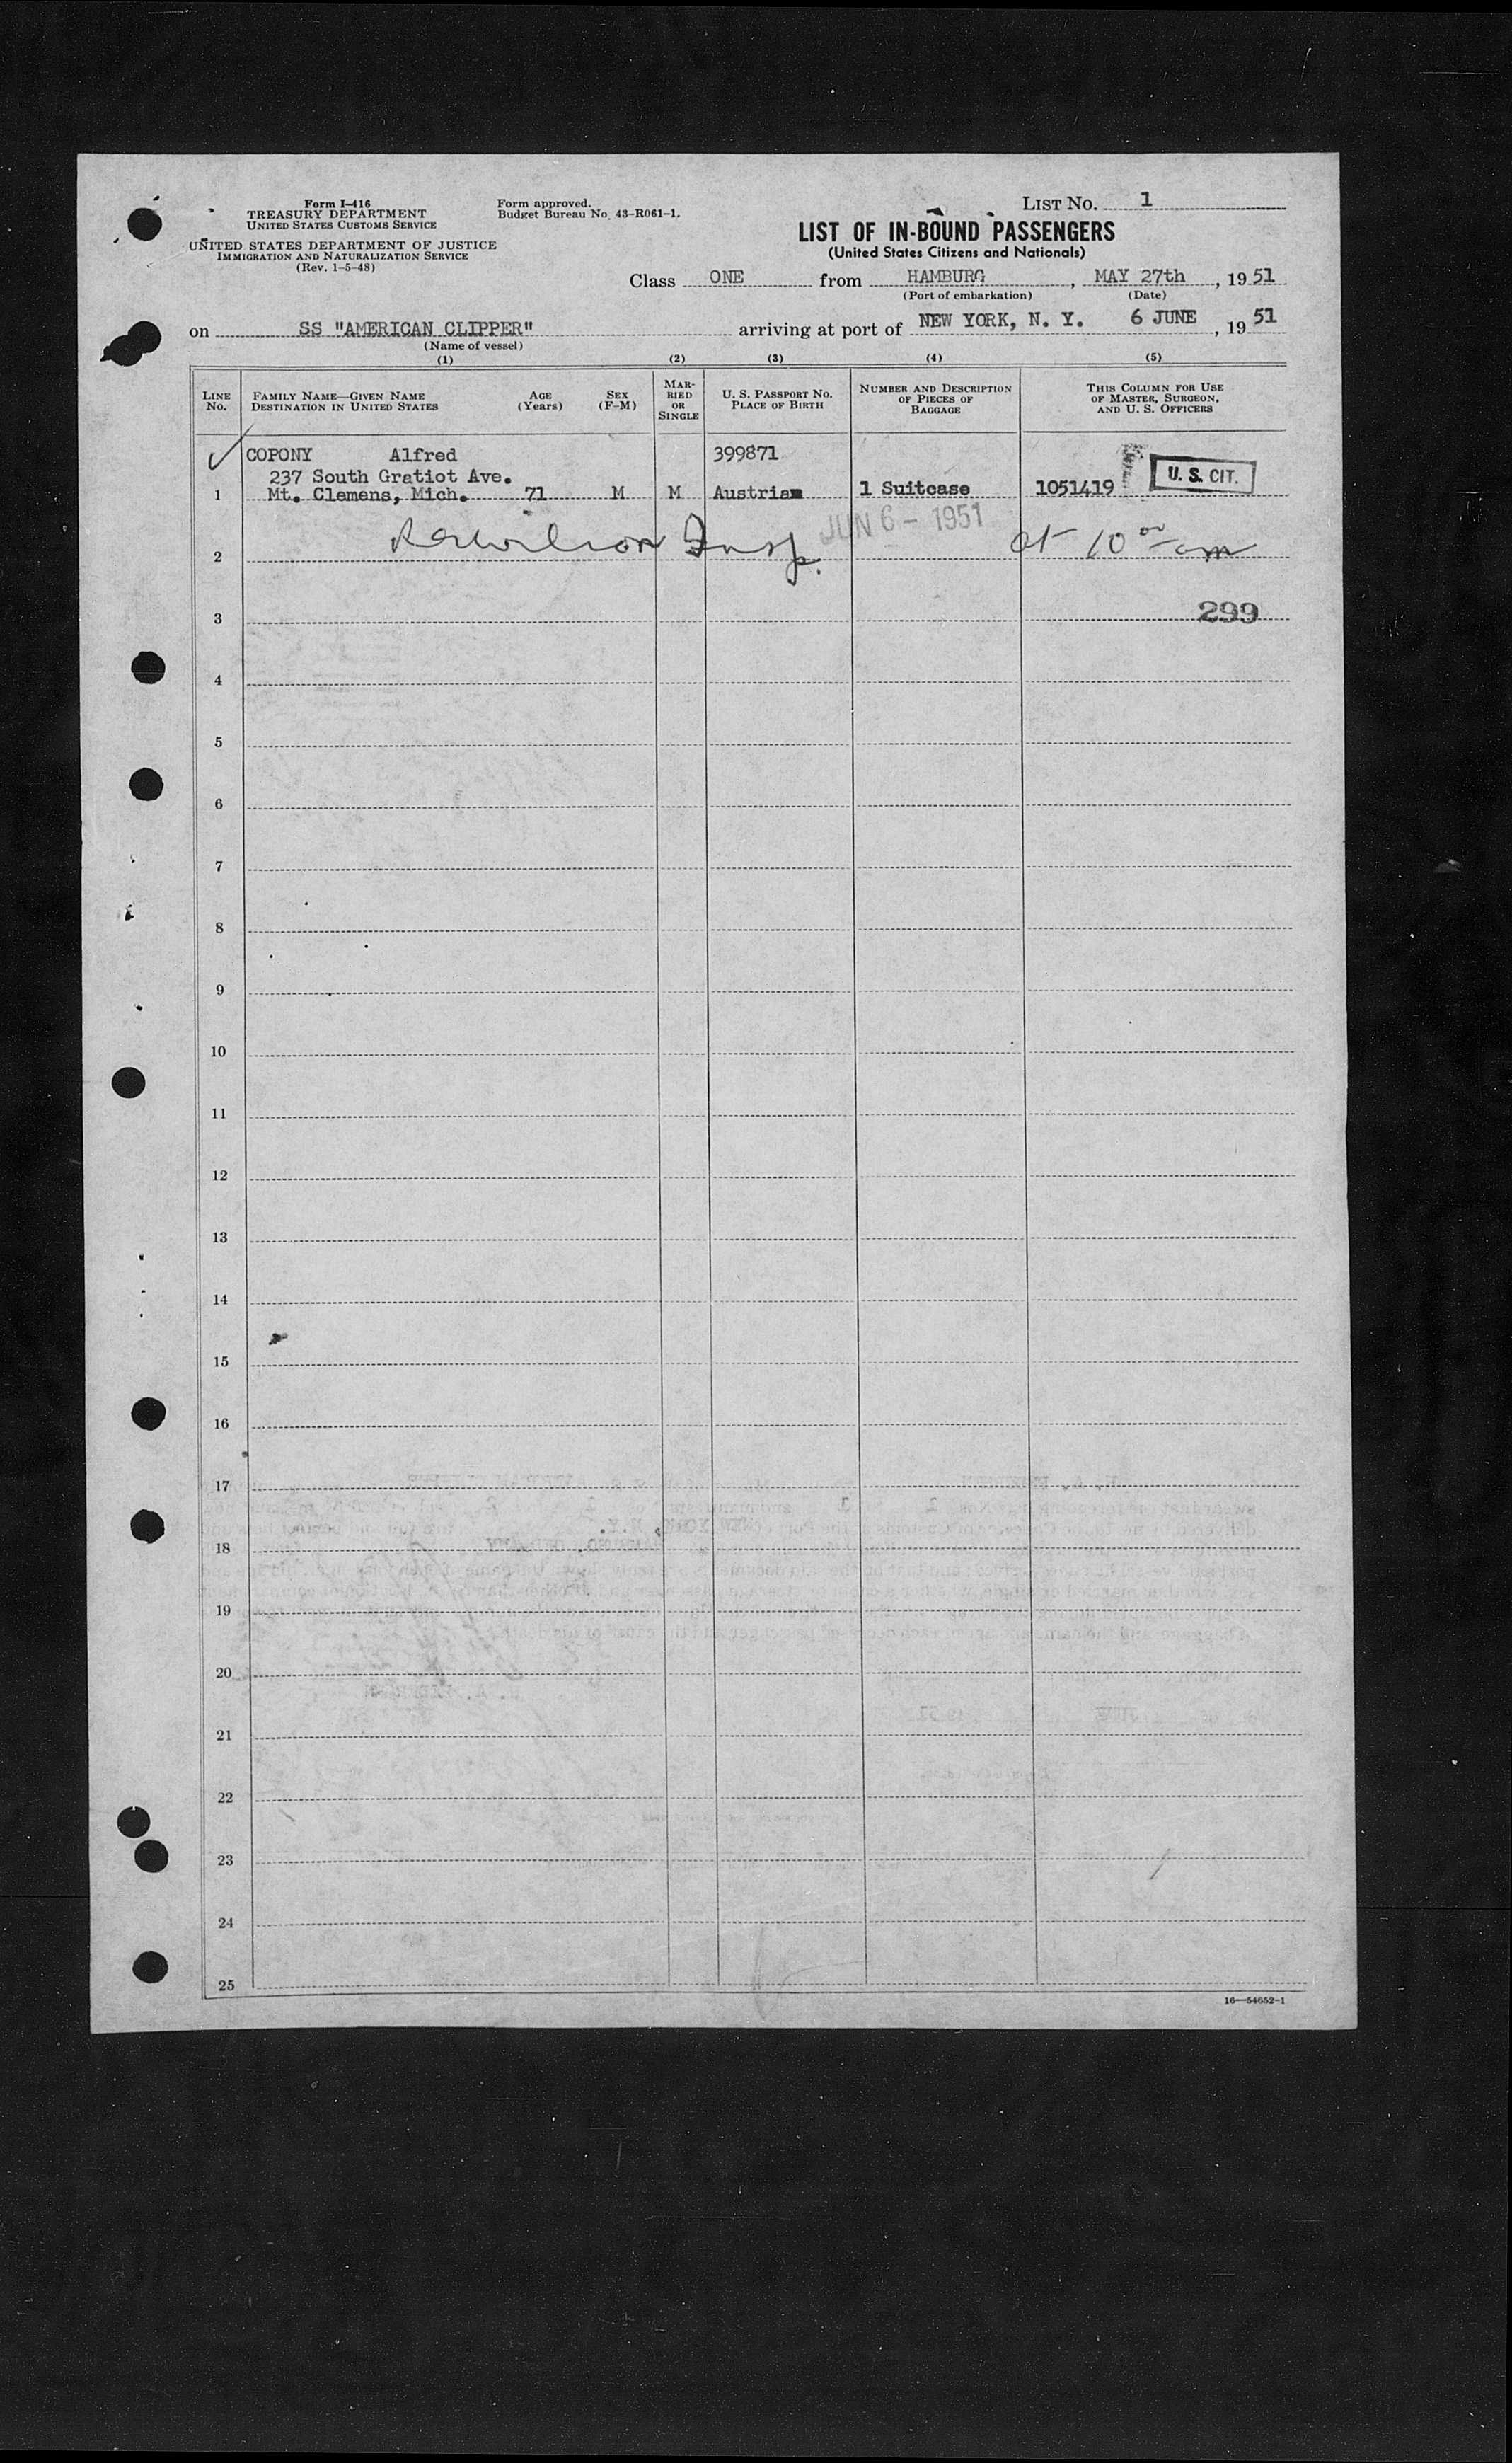 Form I-416
TREASURY DEPARTMENT
UNITED STATES CUSTOMS SERVICE
UNITED STATES DEPARTMENT OF JUSTICE
IMMIGRATION AND NATURALIZATION SERVICE
(Rev. 1-5-48)
Form approved.
Budget Bureau No. 43-R061-1.
LIST NO. 1
LIST OF IN-BOUND PASSENGERS
(United States Citizens and Nationals)
Class ONE from HAMBURG, MAY 27th, 19 51
(Port of embarkation) (Date)
on SS "AMERICAN CLIPPER" arriving at port of NEW YORK, N. Y. 6 JUNE, 19 51
(Name of vessel)
(1) (2) (3) (4) (5)
LINE No. FAMILY NAME—GIVEN NAME DESTINATION IN UNITED STATES AGE (Years) SEX (F-M) MARRIED OR SINGLE U. S. PASSPORT NO. PLACE OF BIRTH NUMBER AND DESCRIPTION OF PIECES OF BAGGAGE THIS COLUMN FOR USE OF MASTER, SURGEON, AND U. S. OFFICERS
COPONY Alfred 399871
237 South Gratiot Ave.
1 Mt. Clemens, Mich. 71 M M Austria 1 Suitcase 1051419 U. S. CIT.
JUN 6 - 1951
2 Insp. at 10 00 am
3 299
4
5
6
7
8
9
10
11
12
13
14
15
16
17
18
19
20
21
22
23
24
25
16—54652-1